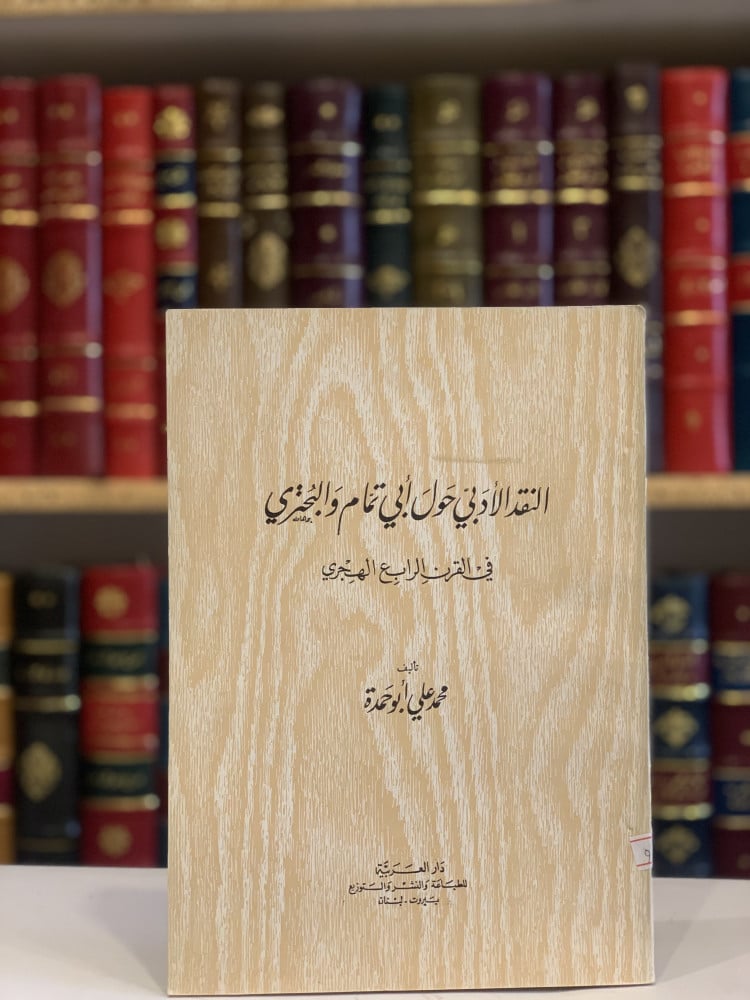 النقد الأدبي حَولَ أبي تمّام وَالبُحتري
في القرن الرابع الهجري
تأليف
محمد علي أبو حَمدة
دَار العَرَبيَّة
للطبَاعَة وَالنشر وَالتوزيع
بيروت - لبنان